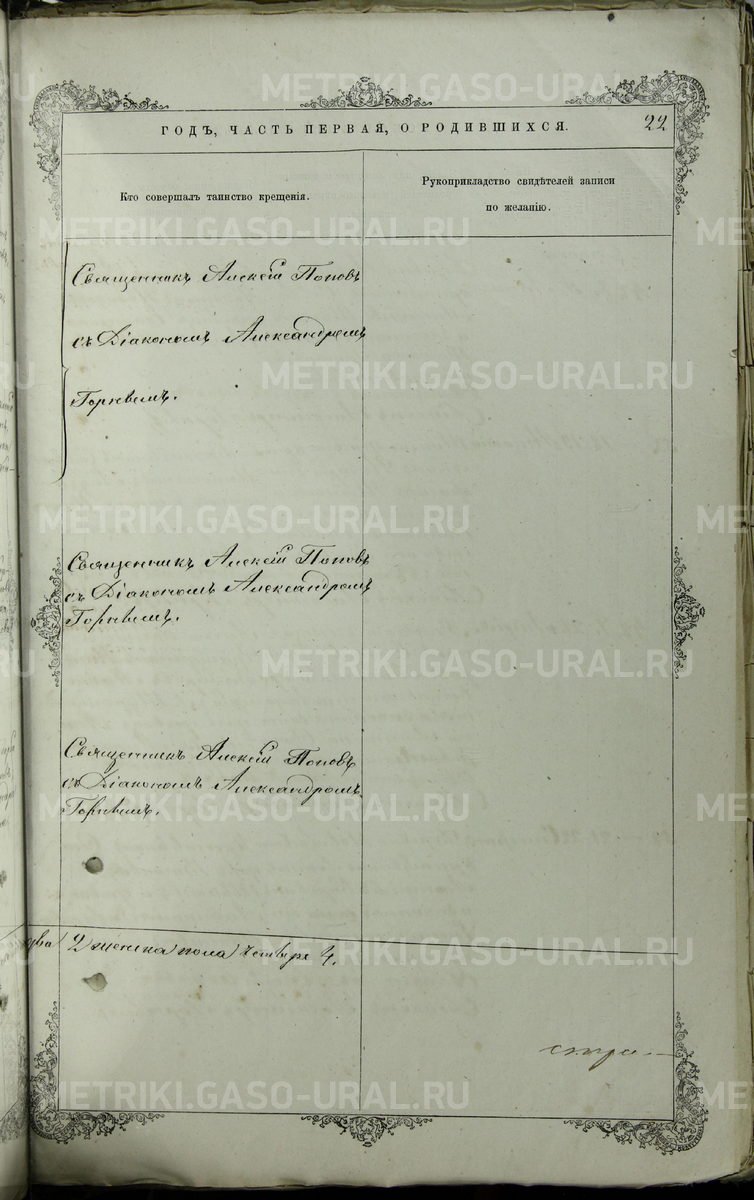 METRIKI.GASO-URAL.RU
ГОДЪ, ЧАСТЬ ПЕРВАЯ, О РОДИВШИХСЯ.
22
Кто совершалъ таинство крещенія.
Рукоприкладство свидѣтелей записи
по желанію.
Священникъ Алексій Поповъ
съ Діакономъ Александромъ
Священникъ Алексій Поповъ
съ Діакономъ Александромъ
Священникъ Алексій Поповъ
съ Діакономъ Александромъ
два 2 женска пола четыре 4.